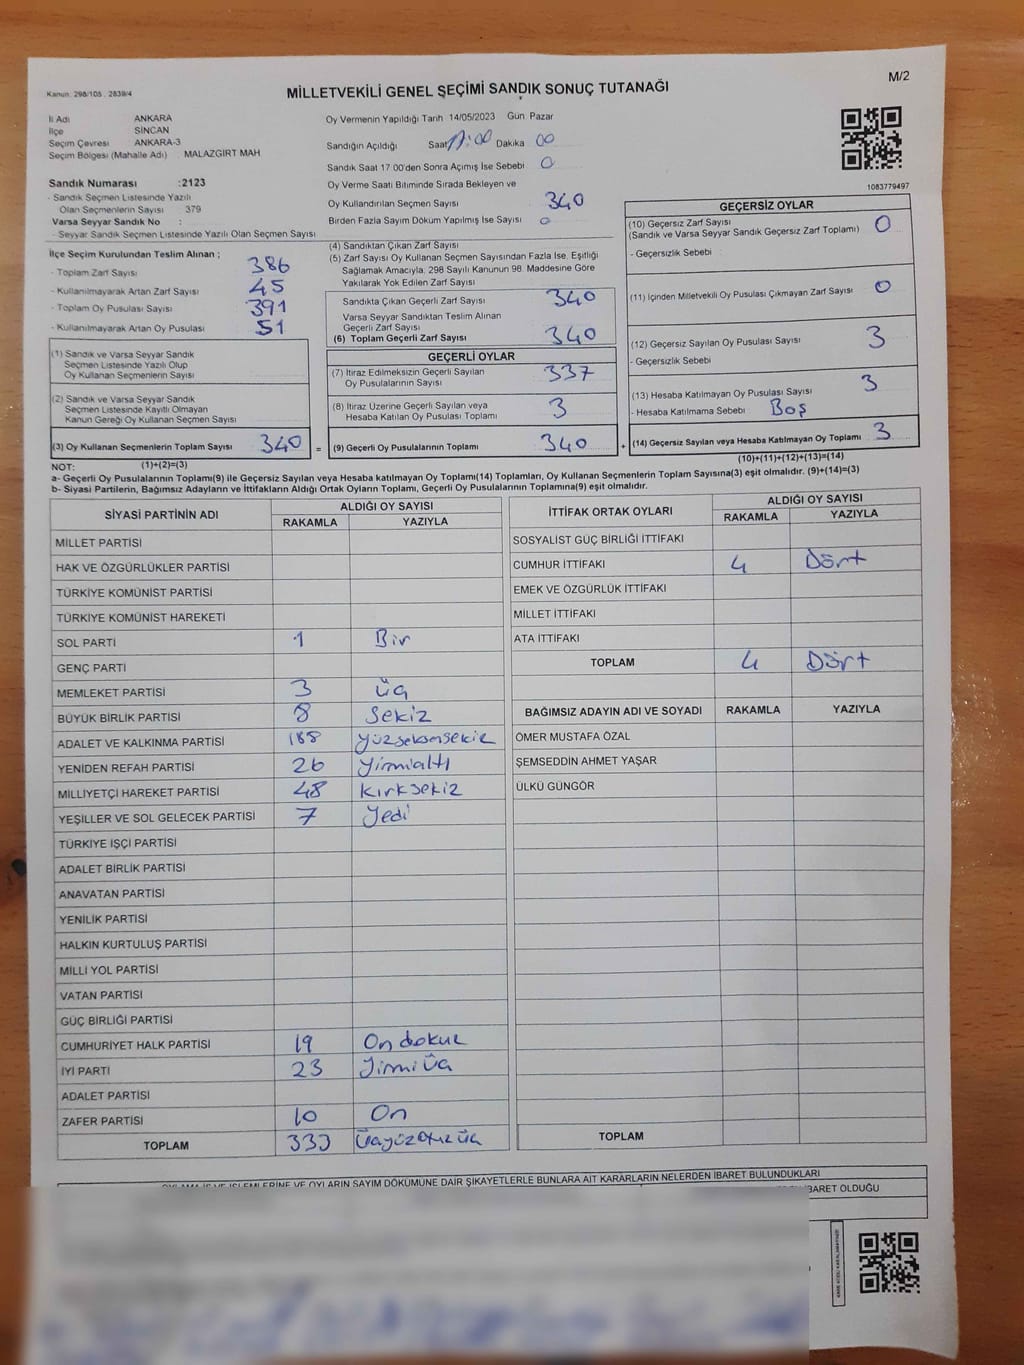 M/2
Kanun: 298/105 , 2839/4
MİLLETVEKİLİ GENEL SEÇİMİ SANDIK SONUÇ TUTANAĞI
İl Adı ANKARA
İlçe SİNCAN
Seçim Çevresi ANKARA-3
Seçim Bölgesi (Mahalle Adı) : MALAZGİRT MAH
Sandık Numarası :2123
- Sandık Seçmen Listesinde Yazılı
Olan Seçmenlerin Sayısı 379
Varsa Seyyar Sandık No :
- Seyyar Sandık Seçmen Listesinde Yazılı Olan Seçmen Sayısı
Oy Vermenin Yapıldığı Tarih 14/05/2023 Gün Pazar
Sandığın Açıldığı Saat 17:00 Dakika 00
Sandık Saat 17.00'den Sonra Açılmış İse Sebebi 0
Oy Verme Saati Bitiminde Sırada Bekleyen ve
Oy Kullandırılan Seçmen Sayısı 340
Birden Fazla Sayım Döküm Yapılmış İse Sayısı 0
1083779497
İlçe Seçim Kurulundan Teslim Alınan ;
- Toplam Zarf Sayısı 386
- Kullanılmayarak Artan Zarf Sayısı 45
- Toplam Oy Pusulası Sayısı 391
- Kullanılmayarak Artan Oy Pusulası 51
(1) Sandık ve Varsa Seyyar Sandık
Seçmen Listesinde Yazılı Olup
Oy Kullanan Seçmenlerin Sayısı
(2) Sandık ve Varsa Seyyar Sandık
Seçmen Listesinde Kayıtlı Olmayan
Kanun Gereği Oy Kullanan Seçmen Sayısı
(3) Oy Kullanan Seçmenlerin Toplam Sayısı 340 =
(4) Sandıktan Çıkan Zarf Sayısı
(5) Zarf Sayısı Oy Kullanan Seçmen Sayısından Fazla İse, Eşitliği
Sağlamak Amacıyla, 298 Sayılı Kanunun 98. Maddesine Göre
Yakılarak Yok Edilen Zarf Sayısı
Sandıkta Çıkan Geçerli Zarf Sayısı 340
Varsa Seyyar Sandıktan Teslim Alınan
Geçerli Zarf Sayısı
(6) Toplam Geçerli Zarf Sayısı 340
GEÇERLİ OYLAR
(7) İtiraz Edilmeksizin Geçerli Sayılan
Oy Pusulalarının Sayısı 337
(8) İtiraz Üzerine Geçerli Sayılan veya
Hesaba Katılan Oy Pusulası Toplamı 3
(9) Geçerli Oy Pusulalarının Toplamı 340 +
GEÇERSİZ OYLAR
(10) Geçersiz Zarf Sayısı 0
(Sandık ve Varsa Seyyar Sandık Geçersiz Zarf Toplamı)
- Geçersizlik Sebebi :
(11) İçinden Milletvekili Oy Pusulası Çıkmayan Zarf Sayısı 0
(12) Geçersiz Sayılan Oy Pusulası Sayısı 3
- Geçersizlik Sebebi
(13) Hesaba Katılmayan Oy Pusulası Sayısı 3
- Hesaba Katılmama Sebebi Boş
(14) Geçersiz Sayılan veya Hesaba Katılmayan Oy Toplamı 3
NOT: (1)+(2)=(3) (10)+(11)+(12)+(13)=(14)
a- Geçerli Oy Pusulalarının Toplamı(9) ile Geçersiz Sayılan veya Hesaba katılmayan Oy Toplamı(14) Toplamları, Oy Kullanan Seçmenlerin Toplam Sayısına(3) eşit olmalıdır. (9)+(14)=(3)
b- Siyasi Partilerin, Bağımsız Adayların ve İttifakların Aldığı Ortak Oyların Toplamı, Geçerli Oy Pusulalarının Toplamına(9) eşit olmalıdır.
SİYASİ PARTİNİN ADI ALDIĞI OY SAYISI
RAKAMLA YAZIYLA
MİLLET PARTİSİ
HAK VE ÖZGÜRLÜKLER PARTİSİ
TÜRKİYE KOMÜNİST PARTİSİ
TÜRKİYE KOMÜNİST HAREKETİ
SOL PARTİ 1 Bir
GENÇ PARTİ
MEMLEKET PARTİSİ 3 üç
BÜYÜK BİRLİK PARTİSİ 8 Sekiz
ADALET VE KALKINMA PARTİSİ 188 yüzseksensekiz
YENİDEN REFAH PARTİSİ 26 Yirmialtı
MİLLİYETÇİ HAREKET PARTİSİ 48 kırksekiz
YEŞİLLER VE SOL GELECEK PARTİSİ 7 Yedi
TÜRKİYE İŞÇİ PARTİSİ
ADALET BİRLİK PARTİSİ
ANAVATAN PARTİSİ
YENİLİK PARTİSİ
HALKIN KURTULUŞ PARTİSİ
MİLLİ YOL PARTİSİ
VATAN PARTİSİ
GÜÇ BİRLİĞİ PARTİSİ
CUMHURİYET HALK PARTİSİ 19 On dokuz
İYİ PARTİ 23 Yirmi üç
ADALET PARTİSİ
ZAFER PARTİSİ 10 On
TOPLAM 333 üçyüzotuzüç
İTTİFAK ORTAK OYLARI ALDIĞI OY SAYISI
RAKAMLA YAZIYLA
SOSYALİST GÜÇ BİRLİĞİ İTTİFAKI
CUMHUR İTTİFAKI 4 Dört
EMEK VE ÖZGÜRLÜK İTTİFAKI
MİLLET İTTİFAKI
ATA İTTİFAKI
TOPLAM 4 Dört
BAĞIMSIZ ADAYIN ADI VE SOYADI RAKAMLA YAZIYLA
ÖMER MUSTAFA ÖZAL
ŞEMSEDDİN AHMET YAŞAR
ÜLKÜ GÜNGÖR
TOPLAM
OYLAMA İŞ VE İŞLEMLERİNE VE OYLARIN SAYIM DÖKÜMÜNE DAİR ŞİKAYETLERLE BUNLARA AİT KARARLARIN NELERDEN İBARET BULUNDUKLARI
İBARET OLDUĞU